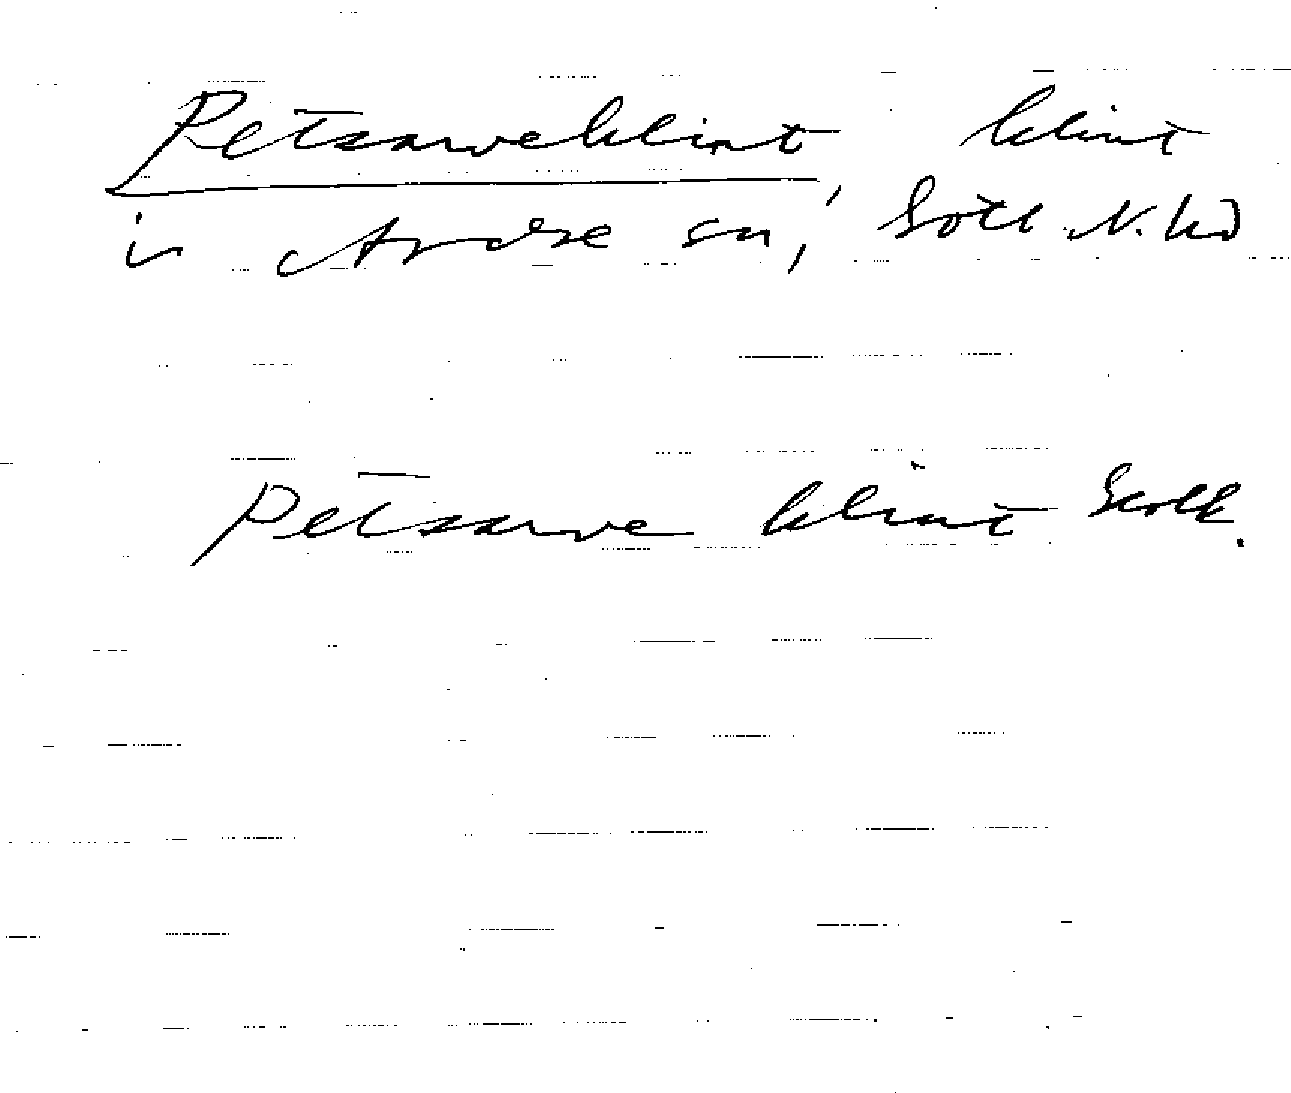 Petsarveklint, klint
i Ardre sn, Gotl. N. Ld
Petsarve klint Gotl.